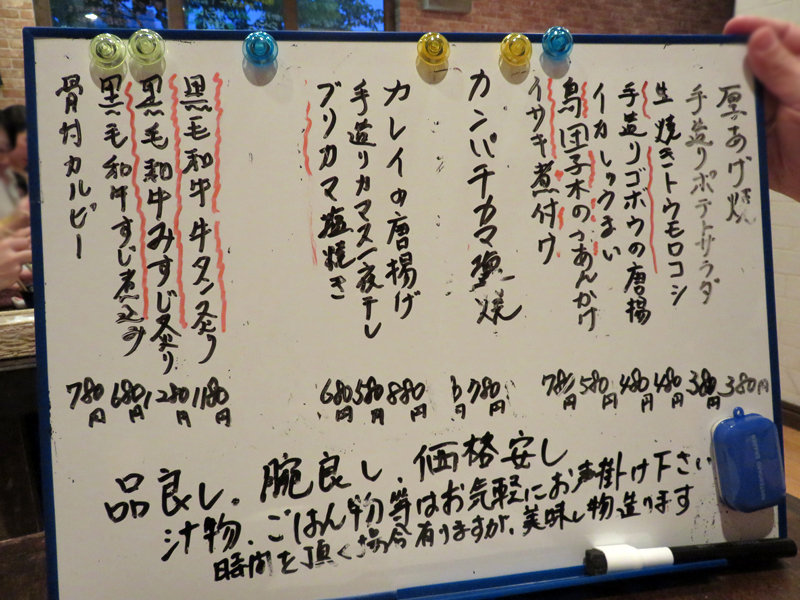 厚あげ焼 380円
手造りポテトサラダ 380円
生焼きトウモロコシ 480円
手造りゴボウの唐揚 480円
イカしゅうまい 580円
鳥団子木のこあんかけ
イサキ煮付け 780円
カンパチカマ塩焼 780円
カレイの唐揚げ 880円
手造りカマス一夜干し 580円
ブリカマ塩焼き 680円
黒毛和牛 牛タン炙り 1180円
黒毛和牛みすじ炙り 1280円
黒毛和牛すじ煮込み 680円
骨付カルビー 780円
品良し、腕良し、価格安し
汁物、ごはん物等はお気軽にお声掛け下さい
時間を頂く場合有りますが、美味し物造ります